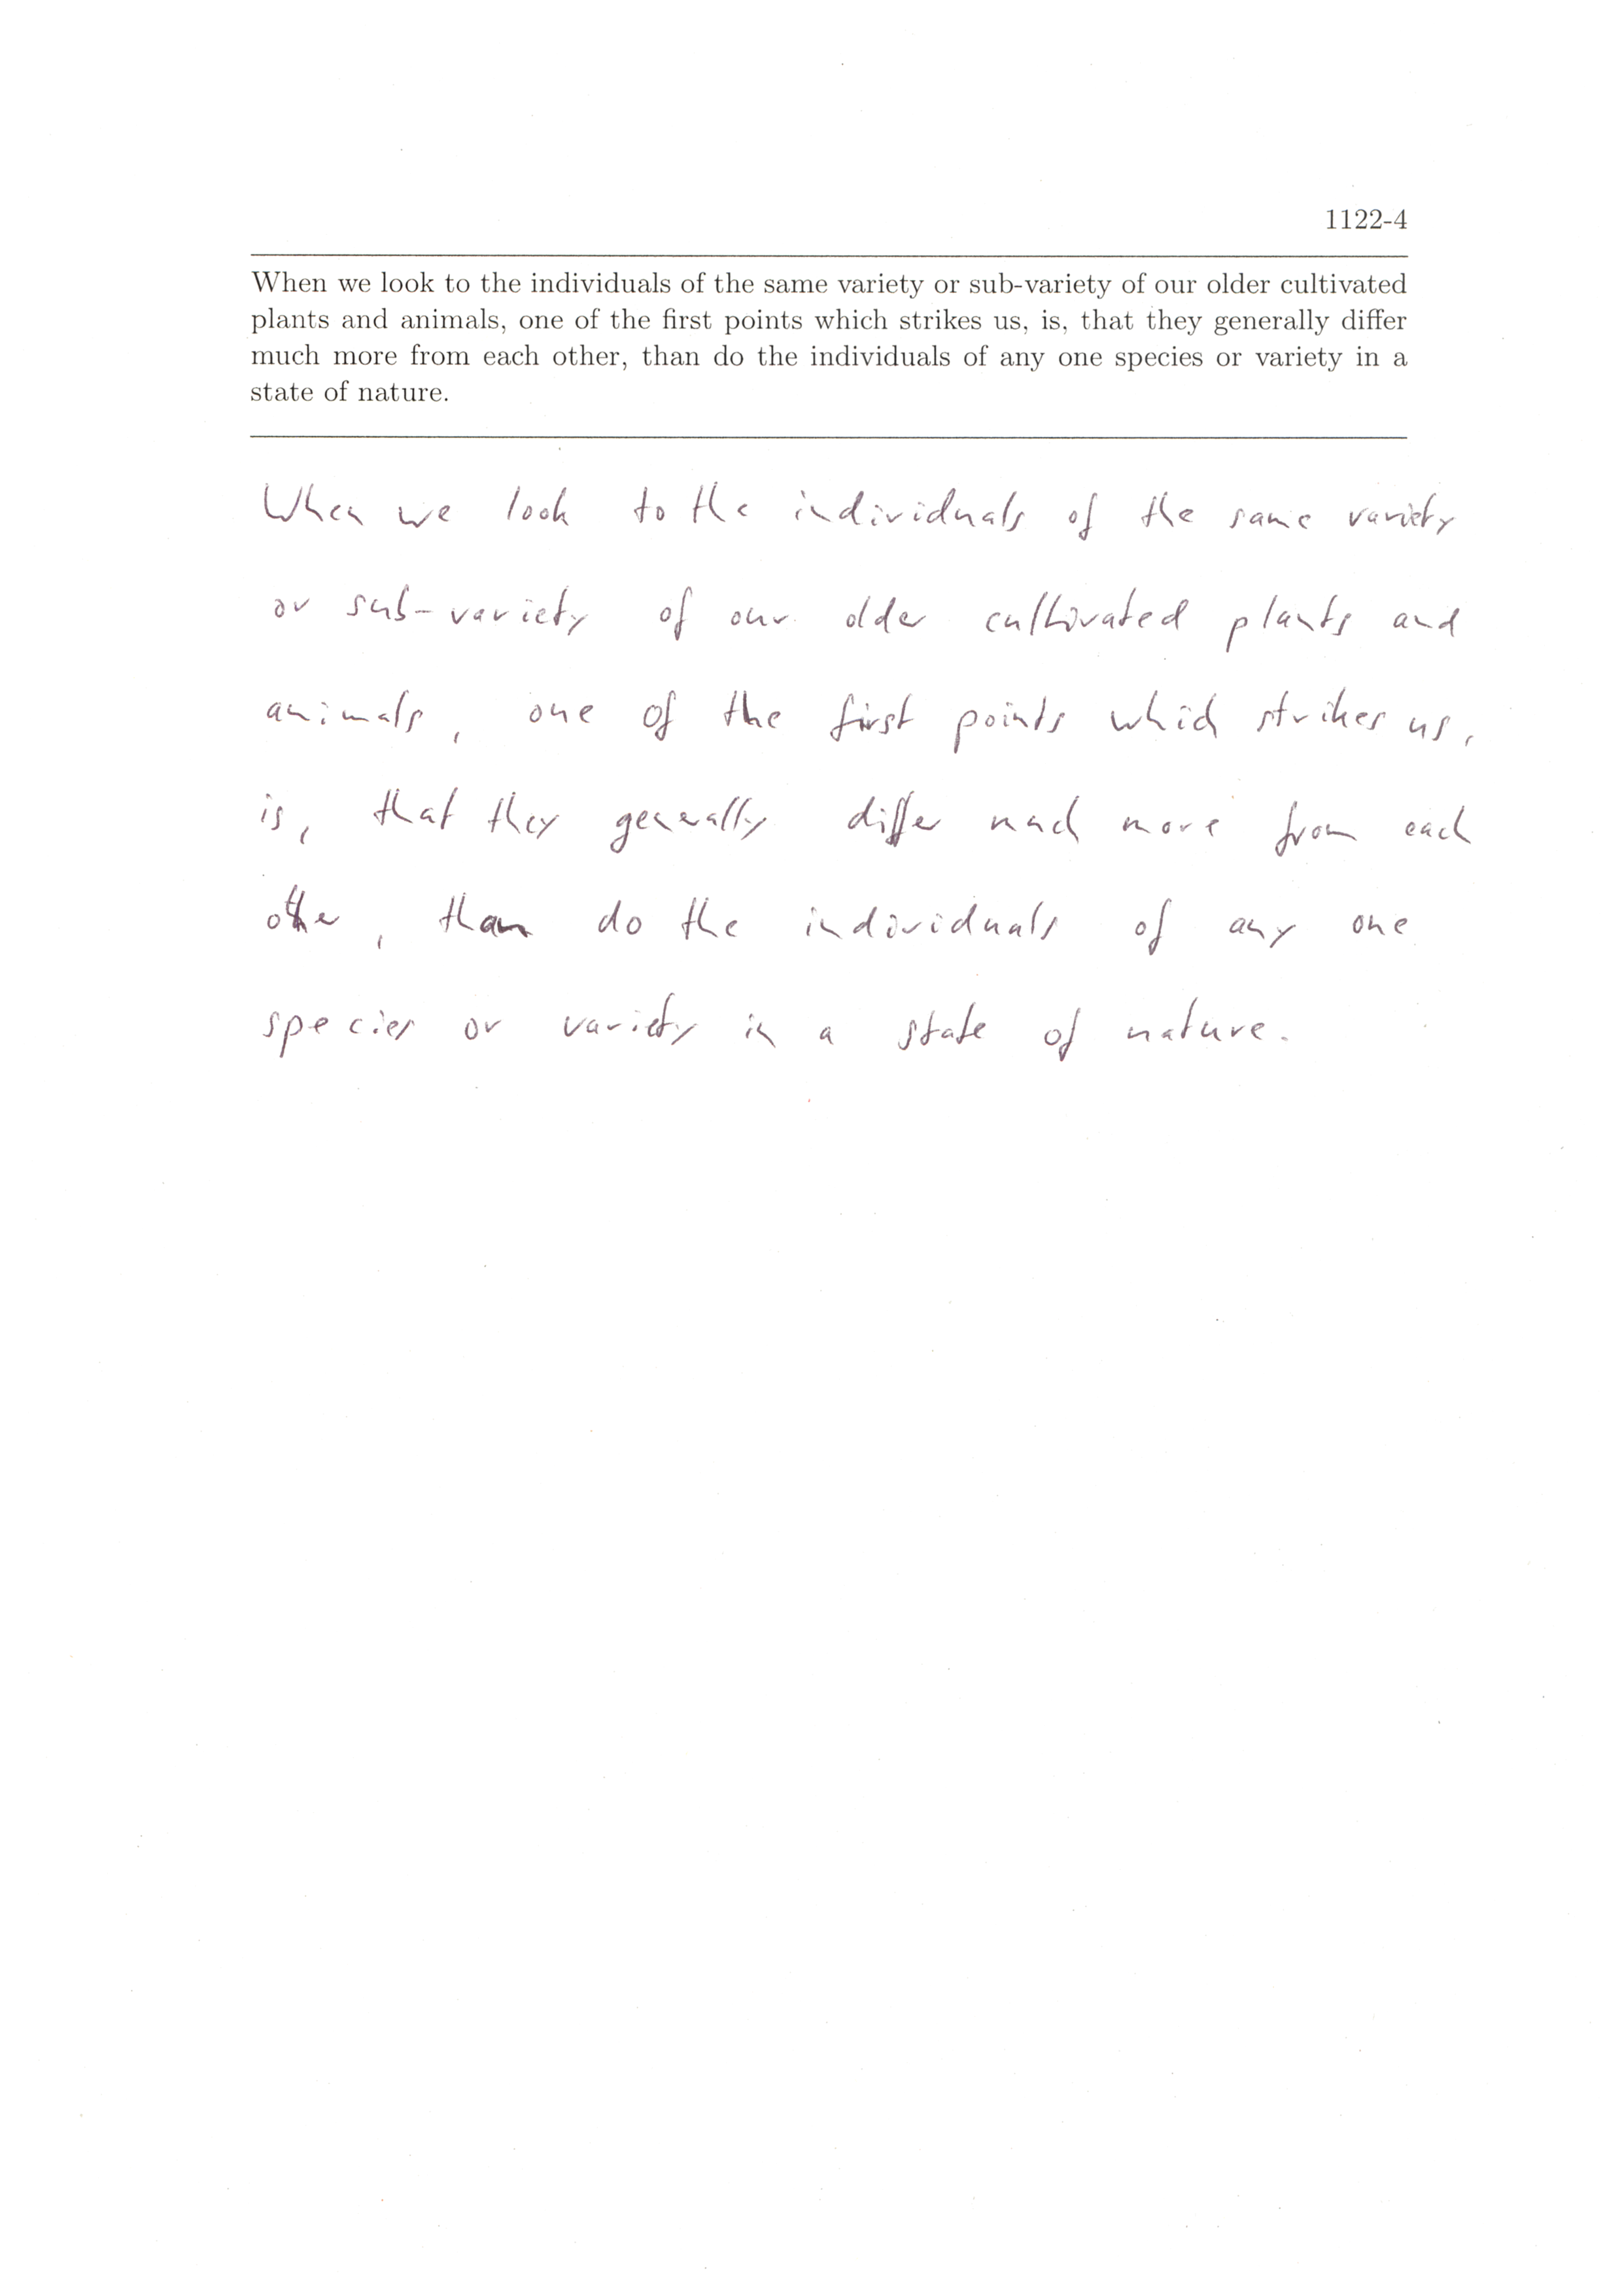 1122-4
When we look to the individuals of the same variety or sub-variety of our older cultivated
plants and animals, one of the first points which strikes us, is, that they generally differ
much more from each other, than do the individuals of any one species or variety in a
state of nature.
When we look to the individuals of the same variety
or sub-variety of our older cultivated plants and
animals, one of the first points which strikes us,
is, that they generally differ much more from each
other, than do the individuals of any one
species or variety in a state of nature.